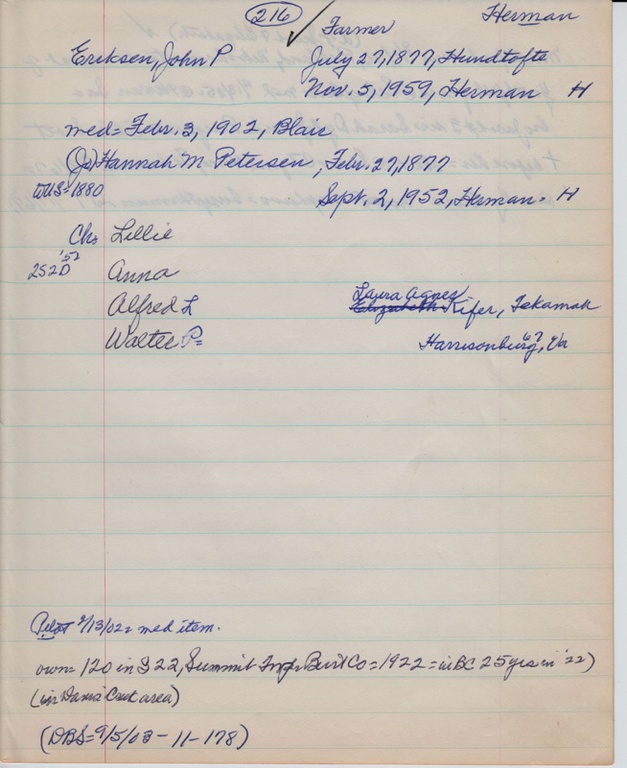 216 Farmer Herman
Eriksen, John P July 27, 1877, Hundtofte
Nov. 5, 1959, Herman H
med = Febr. 3, 1902, Blair
(Js) Hannah M Petersen, Febr. 27, 1877
US = 1880
Sept. 2, 1952, Herman = H
Ch: Lillie
'52
252D Anna
Laura Agnes
Alfred L Elizabeth Kifer, Tekamah
Walter P = Harrisonburg, '67 Va
Pilot 2/13/02 = med item.
own = 120 in S 22, Summit Twp Burt Co = 1922 = in BC 25 yrs in '22)
(in Creek area)
(DBS = 9/5/03 - 11 - 178)